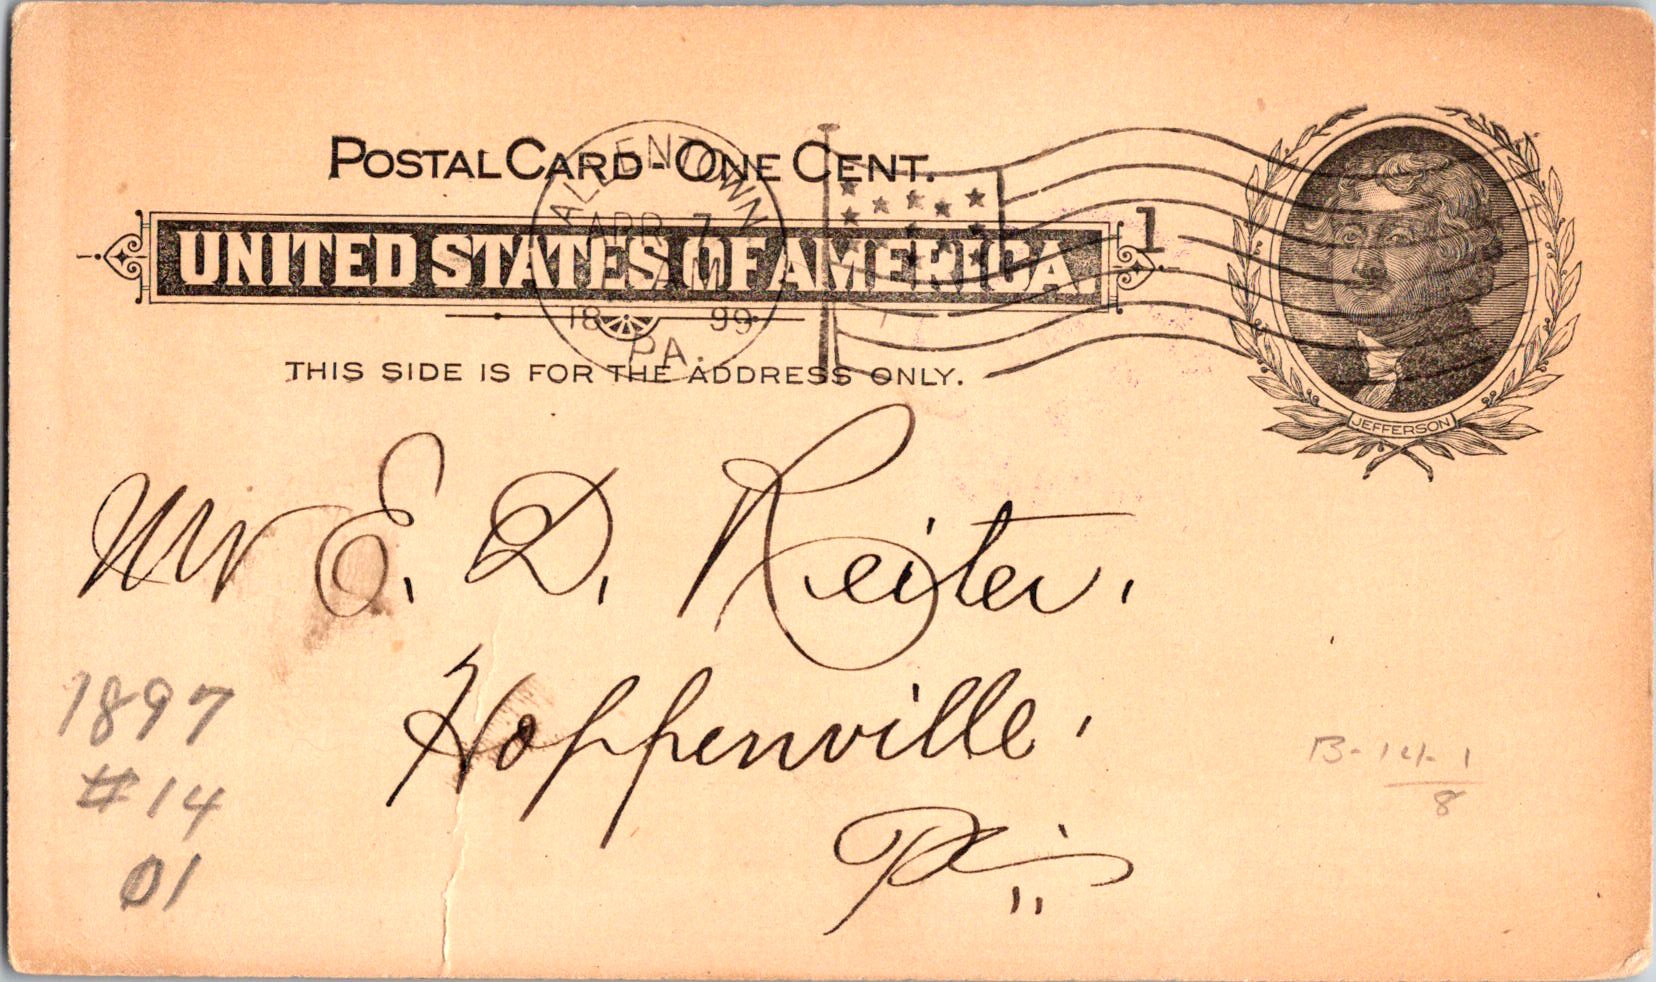 POSTAL CARD - ONE CENT.
ALLENTOWN
APR 7
AM
1899
PA.
UNITED STATES OF AMERICA
1
THIS SIDE IS FOR THE ADDRESS ONLY.
JEFFERSON
Mr E. D. Reiter.
Hoppenville.
Pa
1897
#14
01
B-14-1
8